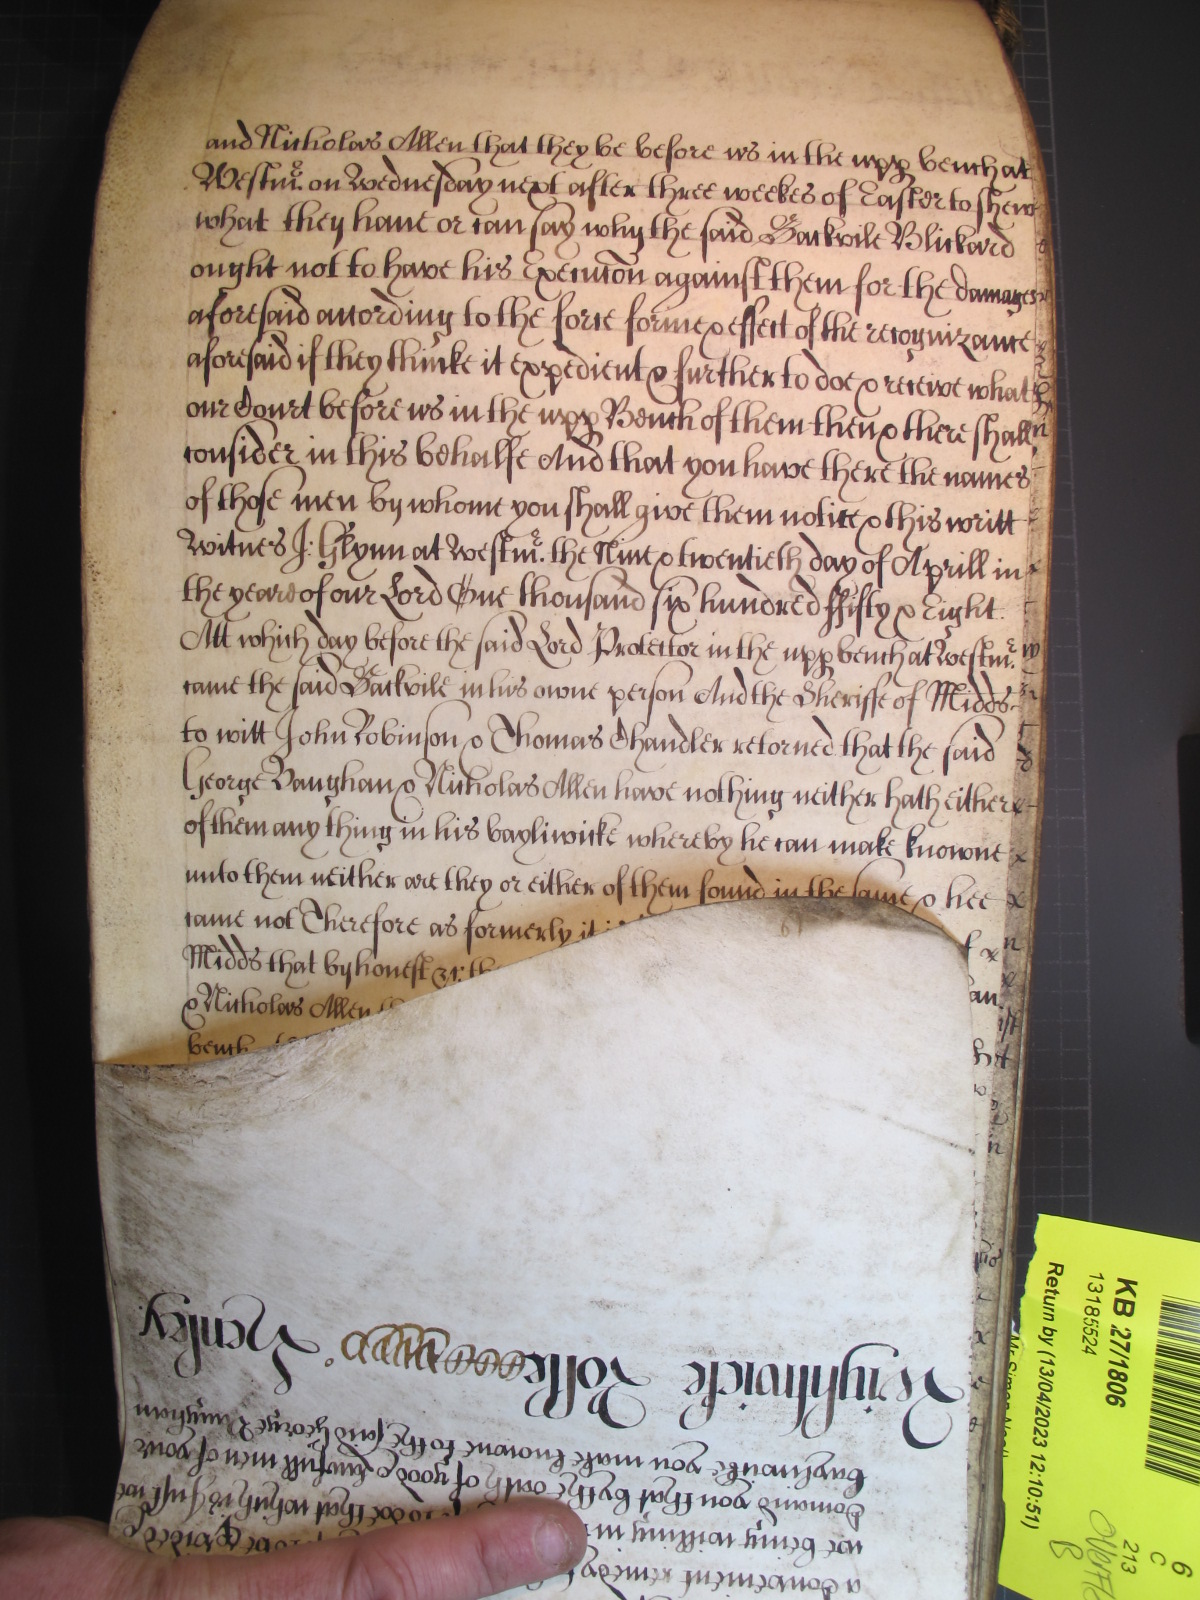 and Nicholas Allen that they be before us in the upp bench at
Westmr. on Wednesday next after three weekes of Easter to shew
what they have or can say why the said Sackvile Blickard
ought not to have his Execucon against them for the damages
aforesaid according to the force forme & effect of the recognizance
aforesaid if they thincke it expedient & further to doe & receive what
our Court before us in the upp Bench of them then & there shall
consider in this behalfe And that you have there the names
of those men by whome you shall give them notice & this writt
Witnes J: Glynn at Westmr. the Nine & twentieth day of Aprill in
the yeare of our Lord One thousand six hundred ffifty & Eight.
Att which day before the said Lord Protector in the upp bench at Westmr.
came the said Sackvile in his owne person And the Sheriffe of Midds
to witt John Robinson & Thomas Chandler retorned that the said
George Vaughan & Nicholas Allen have nothing neither hath either
of them any thing in his bayliwicke whereby he can make knowne
unto them neither are they or either of them found in the same & hee
came not Therefore as formerly it
Midds that by honest &c the
& Nicholas Allen
bench
Wightwicke Rolle Henley
bayliwicke you make knowne to the said George Vaughan
Comand you that by the oath of good & lawfull men of your
we being willing
a convenient remedy
KB 27/1806
13185524
Return by (13/04/2023 12:10:51)
Mr Simon Neal
6
C
213